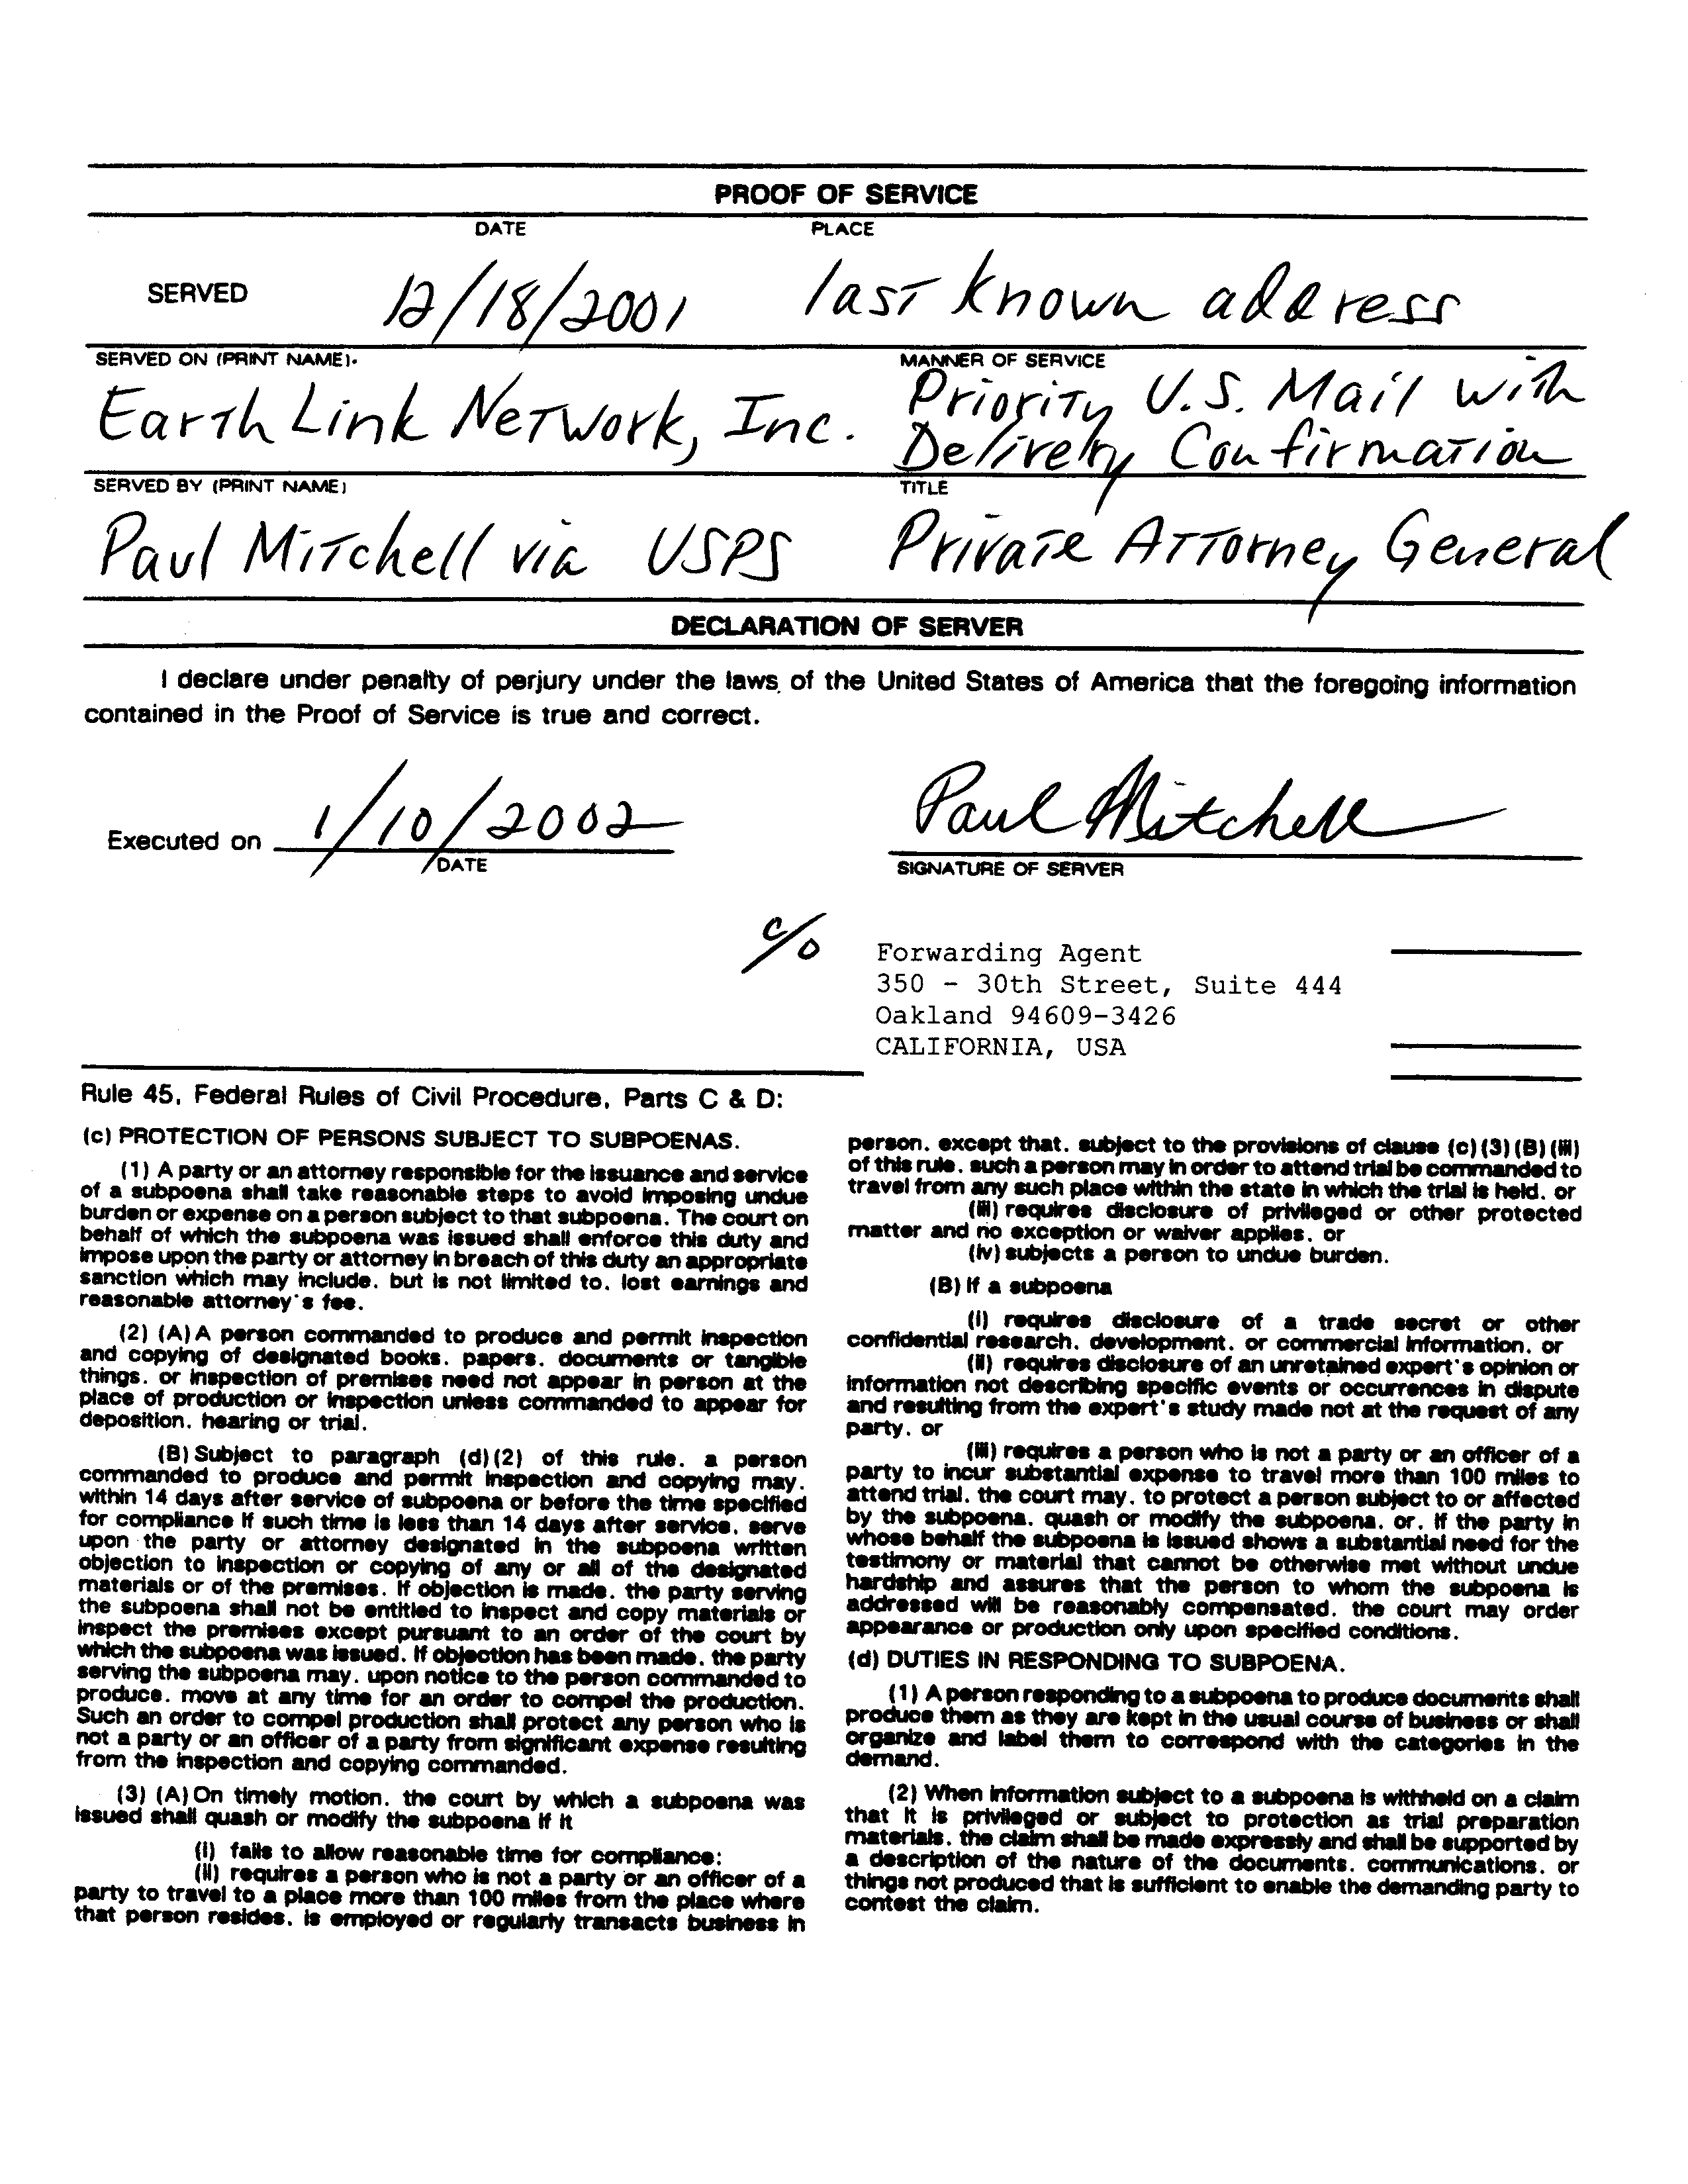 PROOF OF SERVICE
DATE PLACE
SERVED 12/18/2001 last known address
SERVED ON (PRINT NAME). MANNER OF SERVICE
EarthLink Network, Inc. Priority U.S. Mail with
Delivery Confirmation
SERVED BY (PRINT NAME) TITLE
Paul Mitchell via USPS Private Attorney General
DECLARATION OF SERVER
I declare under penalty of perjury under the laws of the United States of America that the foregoing information
contained in the Proof of Service is true and correct.
Executed on 1/10/2002 Paul Mitchell
DATE SIGNATURE OF SERVER
c/o Forwarding Agent
350 - 30th Street, Suite 444
Oakland 94609-3426
CALIFORNIA, USA
Rule 45, Federal Rules of Civil Procedure, Parts C & D:
(c) PROTECTION OF PERSONS SUBJECT TO SUBPOENAS.
(1) A party or an attorney responsible for the issuance and service
of a subpoena shall take reasonable steps to avoid imposing undue
burden or expense on a person subject to that subpoena. The court on
behalf of which the subpoena was issued shall enforce this duty and
impose upon the party or attorney in breach of this duty an appropriate
sanction which may include, but is not limited to, lost earnings and
reasonable attorney's fee.
(2) (A) A person commanded to produce and permit inspection
and copying of designated books, papers, documents or tangible
things, or inspection of premises need not appear in person at the
place of production or inspection unless commanded to appear for
deposition, hearing or trial.
(B) Subject to paragraph (d)(2) of this rule, a person
commanded to produce and permit inspection and copying may,
within 14 days after service of subpoena or before the time specified
for compliance if such time is less than 14 days after service, serve
upon the party or attorney designated in the subpoena written
objection to inspection or copying of any or all of the designated
materials or of the premises. If objection is made, the party serving
the subpoena shall not be entitled to inspect and copy materials or
inspect the premises except pursuant to an order of the court by
which the subpoena was issued. If objection has been made, the party
serving the subpoena may, upon notice to the person commanded to
produce, move at any time for an order to compel the production.
Such an order to compel production shall protect any person who is
not a party or an officer of a party from significant expense resulting
from the inspection and copying commanded.
(3) (A) On timely motion, the court by which a subpoena was
issued shall quash or modify the subpoena if it
(i) fails to allow reasonable time for compliance;
(ii) requires a person who is not a party or an officer of a
party to travel to a place more than 100 miles from the place where
that person resides, is employed or regularly transacts business in
person, except that, subject to the provisions of clause (c)(3)(B)(iii)
of this rule, such a person may in order to attend trial be commanded to
travel from any such place within the state in which the trial is held, or
(iii) requires disclosure of privileged or other protected
matter and no exception or waiver applies, or
(iv) subjects a person to undue burden.
(B) If a subpoena
(i) requires disclosure of a trade secret or other
confidential research, development, or commercial information, or
(ii) requires disclosure of an unretained expert's opinion or
information not describing specific events or occurrences in dispute
and resulting from the expert's study made not at the request of any
party, or
(iii) requires a person who is not a party or an officer of a
party to incur substantial expense to travel more than 100 miles to
attend trial, the court may, to protect a person subject to or affected
by the subpoena, quash or modify the subpoena, or, if the party in
whose behalf the subpoena is issued shows a substantial need for the
testimony or material that cannot be otherwise met without undue
hardship and assures that the person to whom the subpoena is
addressed will be reasonably compensated, the court may order
appearance or production only upon specified conditions.
(d) DUTIES IN RESPONDING TO SUBPOENA.
(1) A person responding to a subpoena to produce documents shall
produce them as they are kept in the usual course of business or shall
organize and label them to correspond with the categories in the
demand.
(2) When information subject to a subpoena is withheld on a claim
that it is privileged or subject to protection as trial preparation
materials, the claim shall be made expressly and shall be supported by
a description of the nature of the documents, communications, or
things not produced that is sufficient to enable the demanding party to
contest the claim.